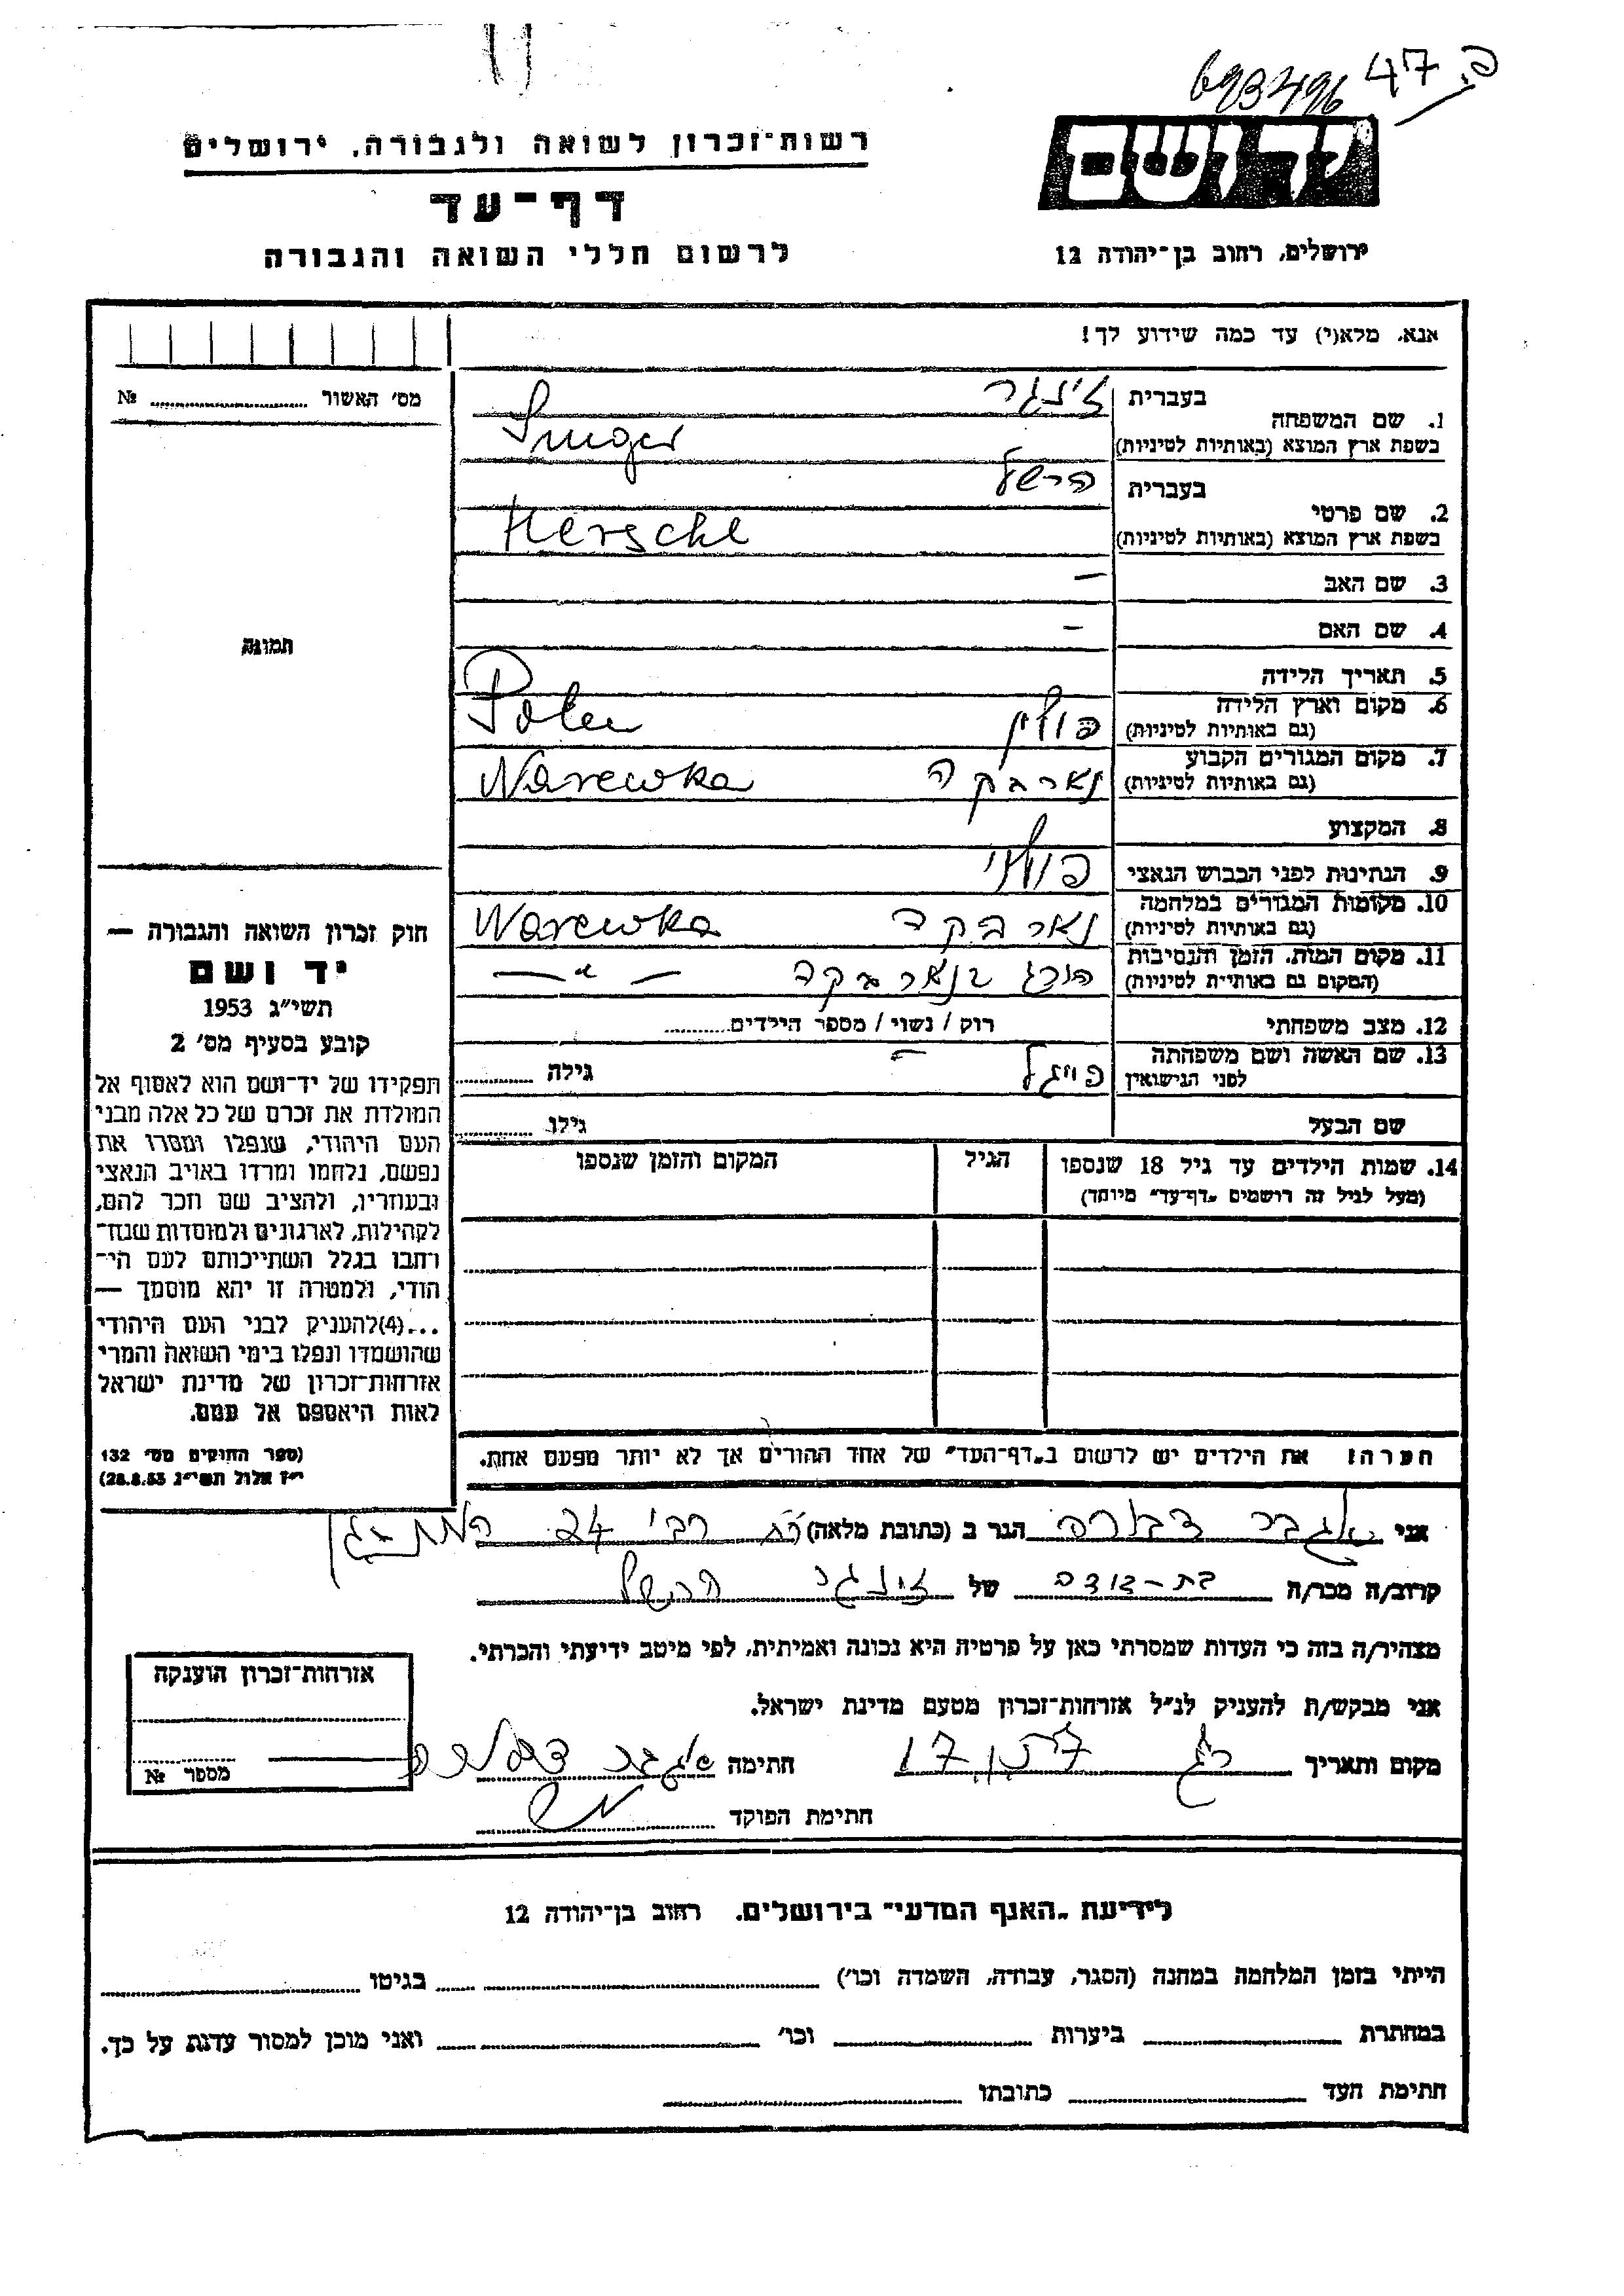 693496 47 פ.
יד ושם
רשות־זכרון לשואה ולגבורה, ירושלים
דף־עד
לרשום חללי השואה והגבורה
ירושלים, רחוב בן־יהודה 12
אנא, מלא(י) עד כמה שידוע לך!
מס׳ האשור № 
1. שם המשפחה
בעברית זינגר
בשפת ארץ המוצא (באותיות לטיניות) Singer
2. שם פרטי
בעברית הרשל
בשפת ארץ המוצא (באותיות לטיניות) Herschl
3. שם האב —
4. שם האם —
5. תאריך הלידה
6. מקום וארץ הלידה
(גם באותיות לטיניות) פולין Polen
7. מקום המגורים הקבוע
(גם באותיות לטיניות) נארבקה Narewka
8. המקצוע
9. הנתינות לפני הכבוש הנאצי פולני
10. מקומות המגורים במלחמה
(גם באותיות לטיניות) נארבקה Narewka
11. מקום המות, הזמן והנסיבות
(המקום גם באותיות לטיניות) הורג בנארבקה — " —
12. מצב משפחתי רוק / נשוי / מספר הילדים
13. שם האשה ושם משפחתה
לפני הנישואין פייגל — גילה
שם הבעל גילו
14. שמות הילדים עד גיל 18 שנספו
(מעל לגיל זה רושמים „דף־עד״ מיוחד)
הגיל
המקום והזמן שנספו
תמונה
חוק זכרון השואה והגבורה —
יד ושם
תשי״ג 1953
קובע בסעיף מס׳ 2
תפקידו של יד־ושם הוא לאסוף אל
המולדת את זכרם של כל אלה מבני
העם היהודי, שנפלו ומסרו את
נפשם, נלחמו ומרדו באויב הנאצי
ובעוזריו, ולהציב שם וזכר להם,
לקהילות, לארגונים ולמוסדות שנח־
רבו בגלל השתייכותם לעם הי־
הודי, ולמטרה זו יהא מוסמך —
...(4)להעניק לבני העם היהודי
שהושמדו ונפלו בימי השואה והמרי
אזרחות־זכרון של מדינת ישראל
לאות היאספם אל עמם.
(ספר החוקים מס׳ 132
י״ז אלול תשי״ג 28.8.53)
הערה! את הילדים יש לרשום ב„דף־העד״ של אחד ההורים אך לא יותר מפעם אחת.
אני דבורה הגר ב (כתובת מלאה) 24
קרוב/ה מכר/ה בת-דודה של זינגר הרשל
מצהיר/ה בזה כי העדות שמסרתי כאן על פרטיה היא נכונה ואמיתית, לפי מיטב ידיעתי והכרתי.
אני מבקש/ת להעניק לנ״ל אזרחות־זכרון מטעם מדינת ישראל.
מקום ותאריך חתימה
חתימת הפוקד
אזרחות־זכרון הוענקה
מספר №
לידיעת „האגף המדעי״ בירושלים, רחוב בן־יהודה 12
הייתי בזמן המלחמה במחנה (הסגר, עבודה, השמדה וכו׳) בגיטו
במחתרת ביערות וכו׳ ואני מוכן למסור עדות על כך.
חתימת העד כתובתו